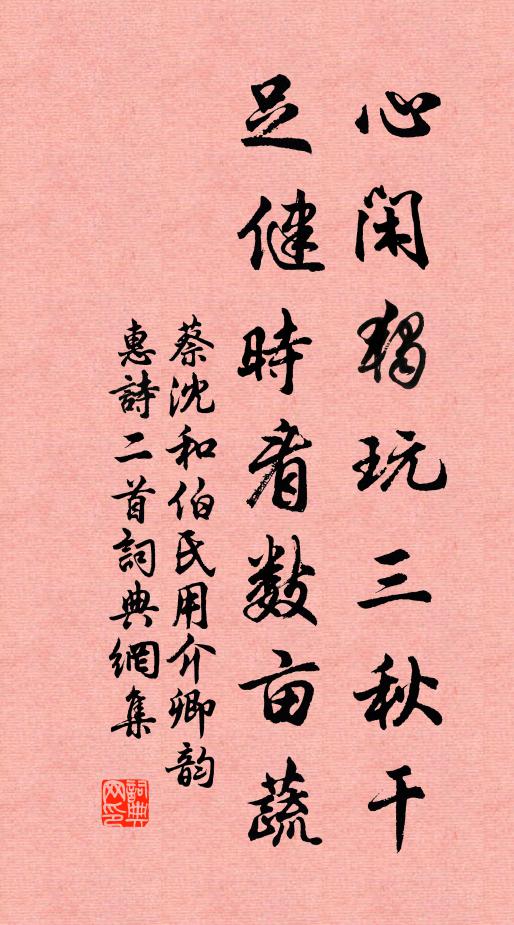 心闲独玩三秋干
足健时看数亩蔬
蔡沈和伯氏用介卿韵
惠詩二首詞典網集
詞典
网印